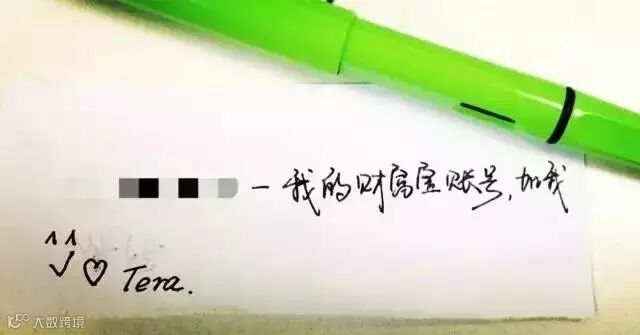 一我的财富宝账号,加我
^^
✓♡ Tera.
大数跨境